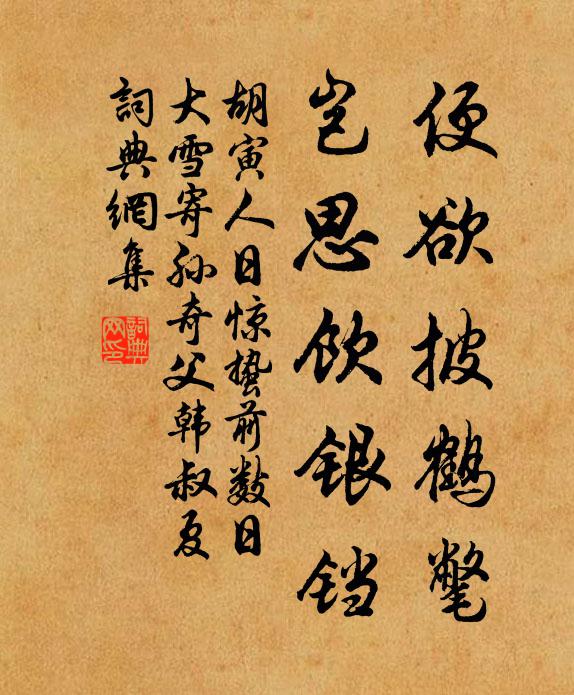 便欲披鹤氅
岂思饮银铛
胡寅人日惊蛰前数日
大雪寄孙奇父韩叔夏
詞典網集
詞典网印